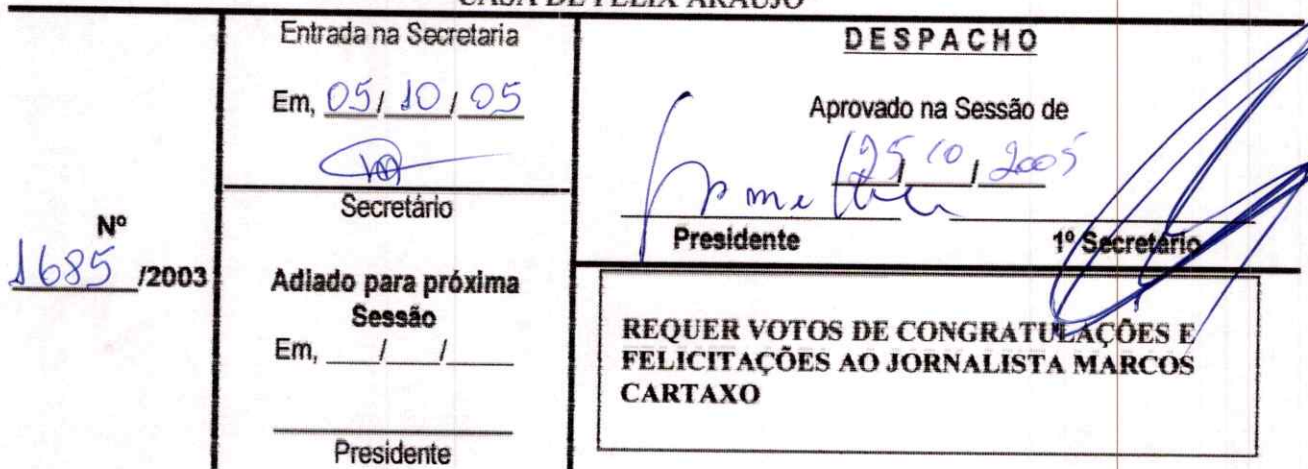 CASA DE FELIX ARAÚJO
Nº
1685 /2003
Entrada na Secretaria
Em, 05/10/05
Secretário
Adiado para próxima
Sessão
Em, ___/___/____
Presidente
DESPACHO
Aprovado na Sessão de
25/10/2005
Presidente 1º Secretario
REQUER VOTOS DE CONGRATULAÇÕES E
FELICITAÇÕES AO JORNALISTA MARCOS
CARTAXO